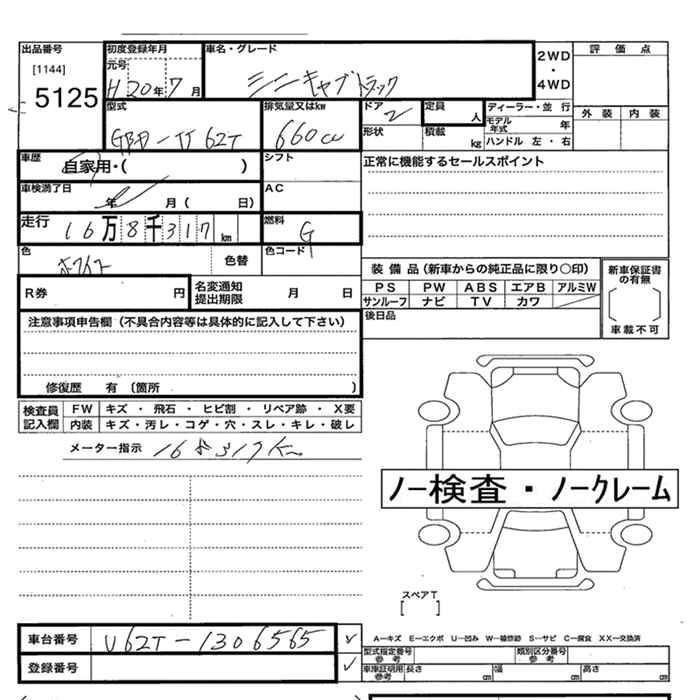 出品番号 初度登録年月 車名・グレード 評価点
[1144] 元号 2WD
5125 H 20年 7月 ミニキャブトラック ・
4WD
型式 排気量又はkw ドア 2 定員 人 ディーラー・並 行 外 装 内 装
モデル年式 年
GBD-U62T 660cc 形状 積載 kg ハンドル 左・右
車歴 自家用・( ) シフト 正常に機能するセールスポイント
車検満了日 年 月 ( 日) AC
走行 16万8千317km 燃料 G
色 ホワイト 色替 色コード
装備品(新車からの純正品に限り○印) 新車保証書の有無
R券 円 名変通知提出期限 月 日 PS PW ABS エアB アルミW
サンルーフ ナビ TV カワ
注意事項申告欄(不具合内容等は具体的に記入して下さい) 後日品 車載不可
修復歴 有 (箇所 )
検査員記入欄 FW キズ・飛石・ヒビ割・リペア跡・X要
内装 キズ・汚レ・コゲ・穴・スレ・キレ・破レ
メーター指示
ノー検査・ノークレーム
スペアT
[ ]
車台番号 U62T-1306565 ✓ A―キズ E―エクボ U―凹み W―補修跡 S―サビ C―腐食 XX―交換済
型式指定番号 参考 類別区分番号 参考
登録番号 ✓ 車庫証明用 参考 長さ cm 幅 cm 高さ cm